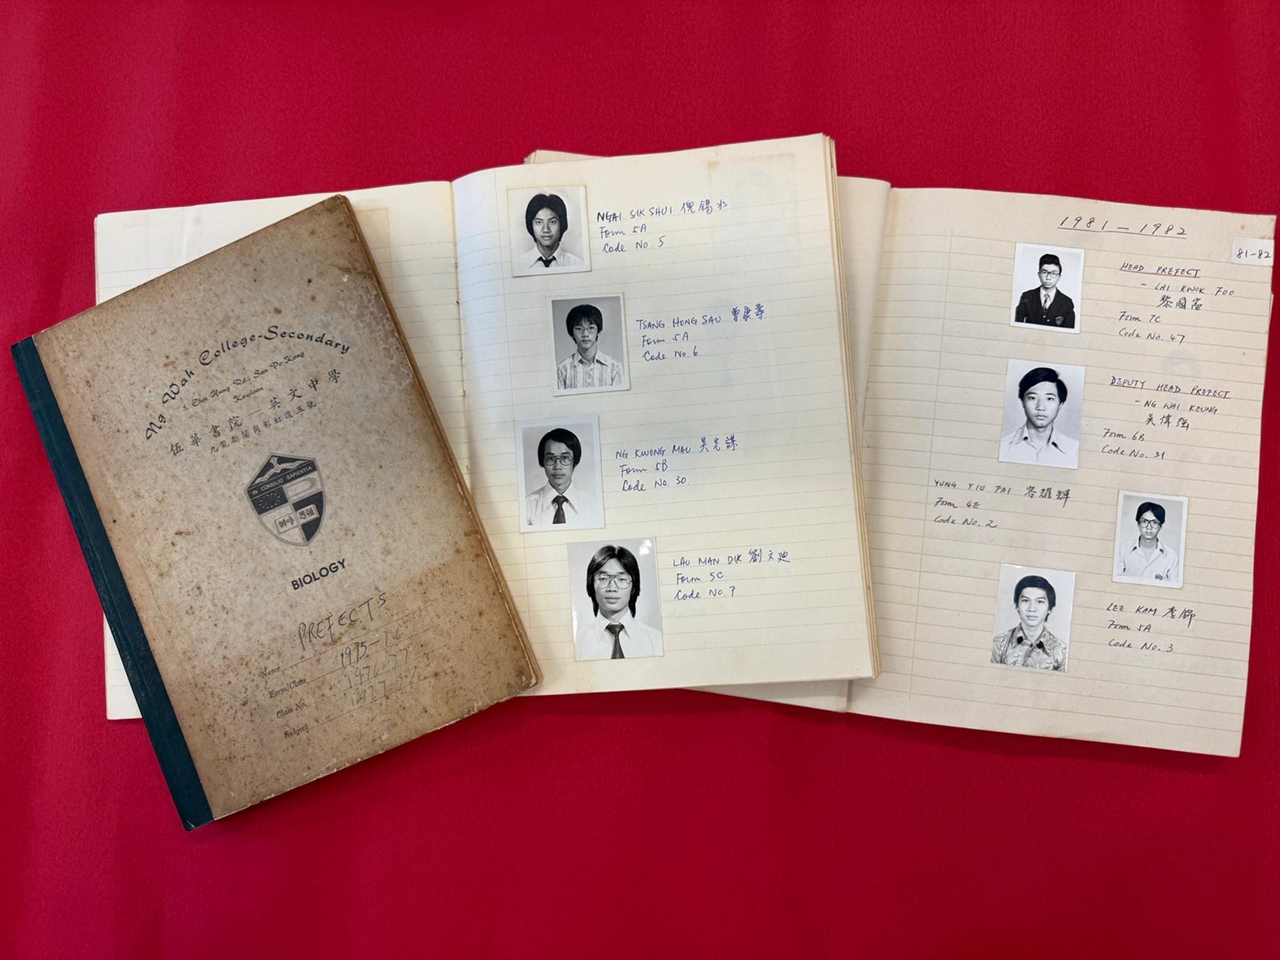 Ng Wah College-Secondary
5, Choi Hung Rd., San Po Kong
Kowloon
伍華書院—英文中學
九龍新蒲崗彩虹道五號
IN CONSILIO SAPIENTIA
BIOLOGY
PREFECTS
Name
1975-76
Form/Class
1976-77
Class No.
1977-78
Subject
NGAI SIK SHUI 倪錫水
Form 5A
Code No. 5
TSANG HONG SAU 曾康壽
Form 5A
Code No. 6
NG KWONG MAU 吳光謀
Form 5B
Code No. 30
LAU MAN DIK 劉文迪
Form 5C
Code No 7
1981 — 1982
81-82
HEAD PREFECT
- LAI KWOK FOO
黎國
Form 7C
Code No. 47
DEPUTY HEAD PREFECT
- NG WAI KEUNG
吳偉强
Form 6B
Code No. 31
YUNG YIU FAI 容耀輝
Form 4E
Code No. 2
LEE KAM 李錦
Form 5A
Code No. 3